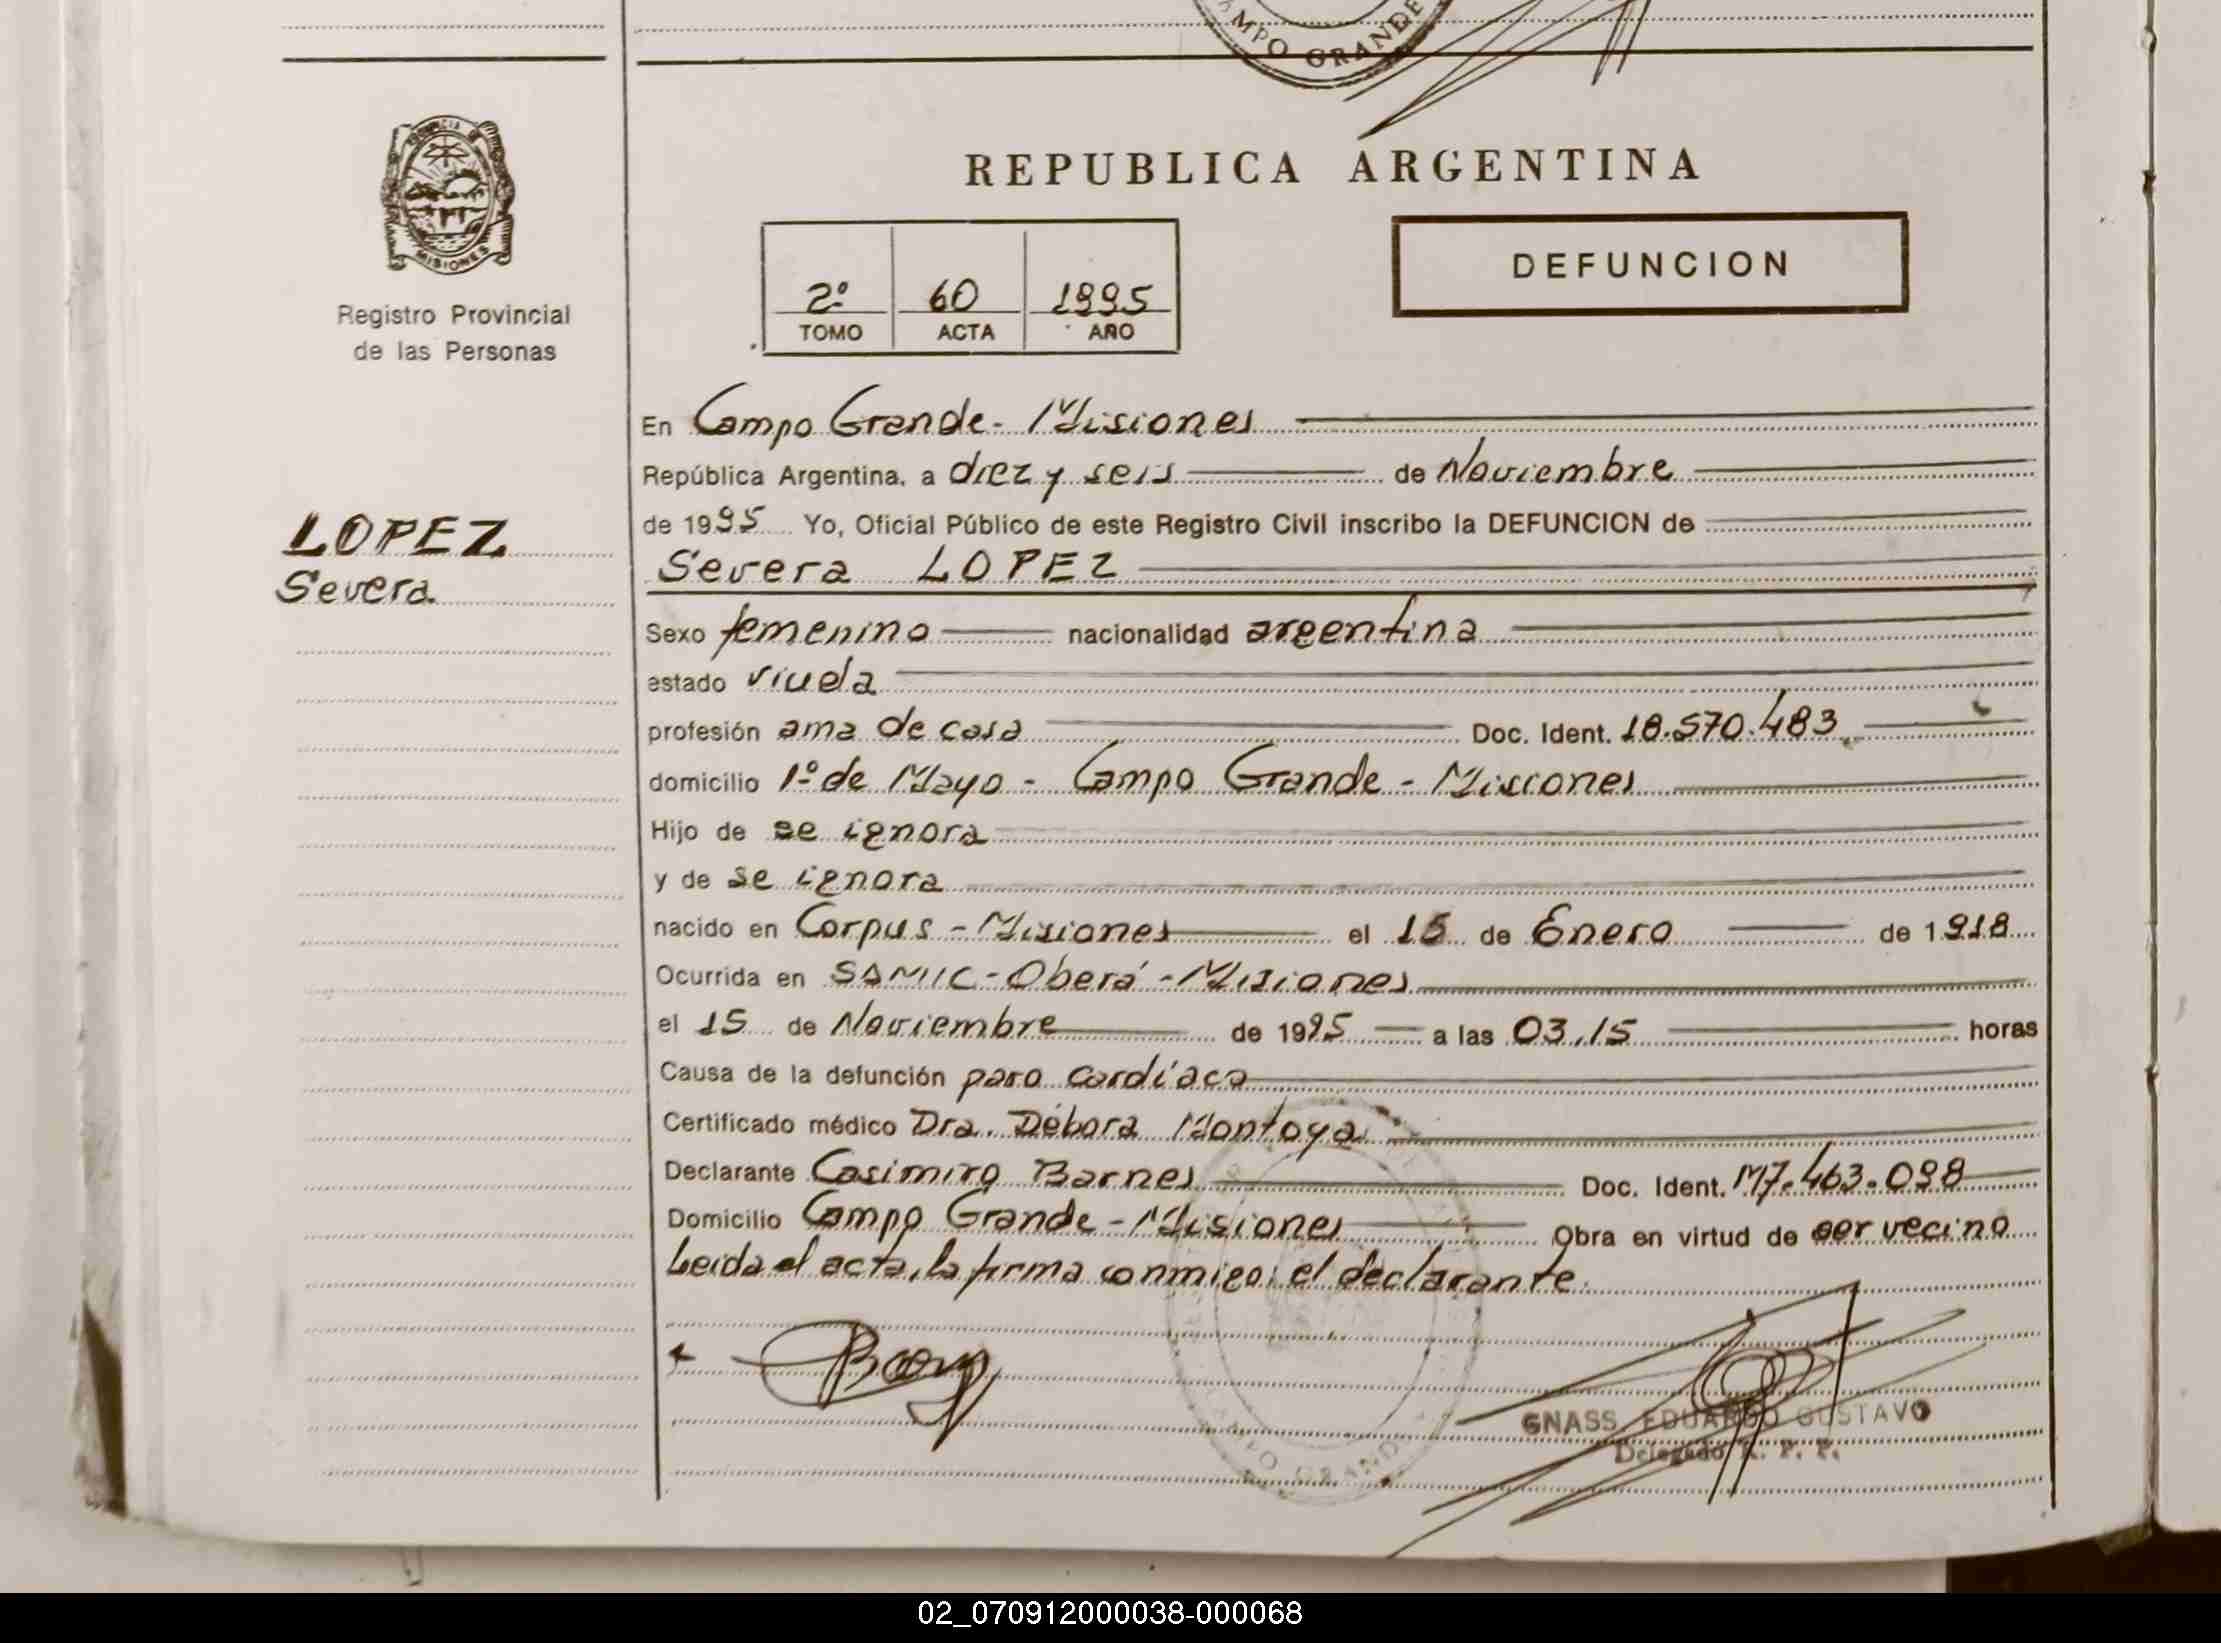 CAMPO GRANDE
PROVINCIA DE
MISIONES
Registro Provincial
de las Personas
REPUBLICA ARGENTINA
DEFUNCION
2º 60 1995
TOMO ACTA AÑO
En Campo Grande - Misiones
República Argentina, a diez y seis de Noviembre
de 1995 Yo, Oficial Público de este Registro Civil inscribo la DEFUNCION de
LOPEZ
Severa
Severa LOPEZ
Sexo femenino nacionalidad argentina
estado viuda
profesión ama de casa Doc. Ident. 18.570.483
domicilio 1º de Mayo - Campo Grande - Misiones
Hijo de se ignora
y de se ignora
nacido en Corpus - Misiones el 15 de Enero de 1918
Ocurrida en SAMIC - Oberá - Misiones
el 15 de Noviembre de 1995 a las 03,15 horas
Causa de la defunción paro cardíaco
Certificado médico Dra. Débora Montoya
Declarante Casimiro Barnes Doc. Ident. M7.463.098
Domicilio Campo Grande - Misiones Obra en virtud de ser vecino
Leida el acta, la firma conmigo el declarante.
GNASS EDUARDO GUSTAVO
Delegado R. P. P.
CAMPO GRANDE
02_070912000038-000068